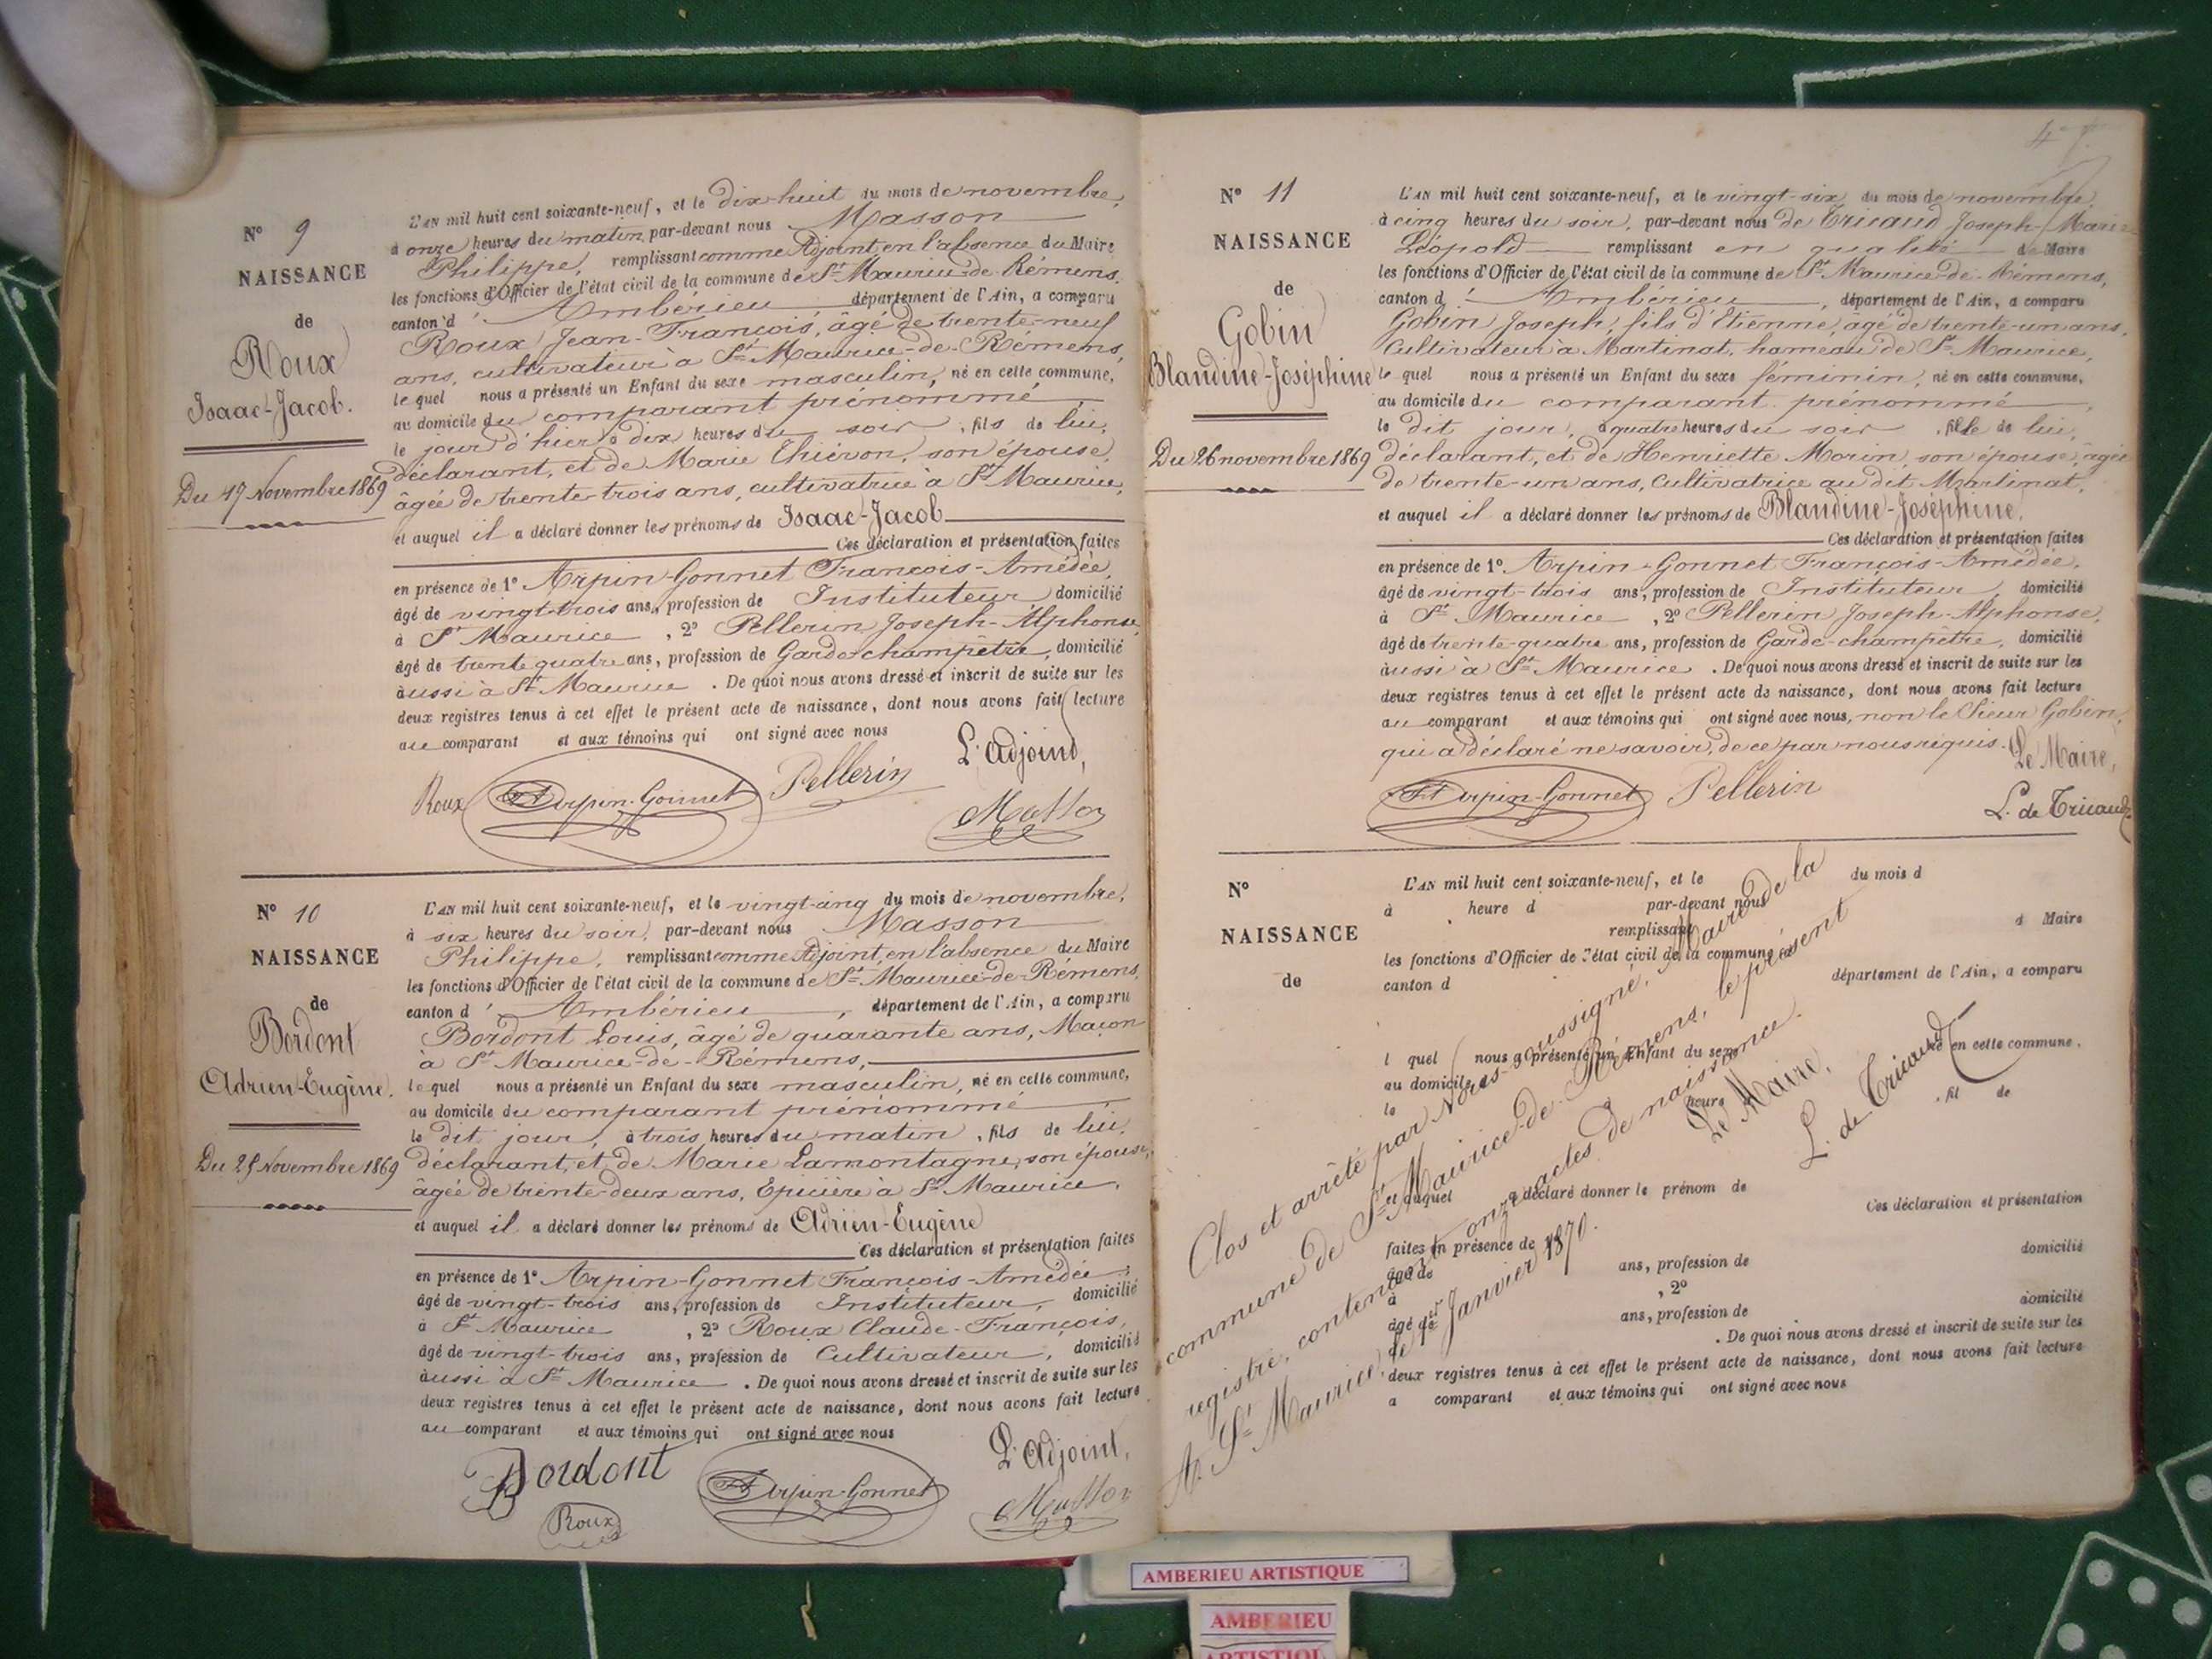 N° 9
NAISSANCE
de
Roux
Isaac-Jacob.
Du 17 Novembre 1869
L'AN mil huit cent soixante-neuf, et le dix-huit du mois de novembre,
à onze heures du matin, par-devant nous Masson
Philippe, remplissant comme Adjoint, en l'absence du Maire
les fonctions d'Officier de l'état civil de la commune de St Maurice-de-Rémens,
canton d' Ambérieu département de l'Ain, a comparu
Roux Jean-François, âgé de trente-neuf
ans, cultivateur à St Maurice-de-Rémens,
le quel nous a présenté un Enfant du sexe masculin, né en cette commune,
au domicile du comparant prénommé
le jour d'hier à dix heures du soir, fils de lui,
déclarant, et de Marie Thiévon, son épouse,
âgée de trente-trois ans, cultivatrice à St Maurice,
et auquel il a déclaré donner les prénoms de Isaac-Jacob
Ces déclaration et présentation faites
en présence de 1° Arpin-Gonnet François-Amédée,
âgé de vingt-trois ans, profession de Instituteur, domicilié
à St Maurice, 2° Pellerin Joseph-Alphonse,
âgé de trente quatre ans, profession de Garde-champêtre, domicilié
aussi à St Maurice. De quoi nous avons dressé et inscrit de suite sur les
deux registres tenus à cet effet le présent acte de naissance, dont nous avons fait lecture
au comparant et aux témoins qui ont signé avec nous
L'Adjoint,
Roux Arpin-Gonnet Pellerin
Masson
N° 10
NAISSANCE
de
Bordont
Adrien-Eugène.
Du 25 Novembre 1869
L'AN mil huit cent soixante-neuf, et le vingt-cinq du mois de novembre,
à six heures du soir, par-devant nous Masson
Philippe, remplissant comme Adjoint, en l'absence du Maire
les fonctions d'Officier de l'état civil de la commune de St Maurice-de-Rémens,
canton d' Ambérieu, département de l'Ain, a comparu
Bordont Louis, âgé de quarante ans, Maçon
à St Maurice-de-Rémens,
le quel nous a présenté un Enfant du sexe masculin, né en cette commune,
au domicile du comparant prénommé
le dit jour, à trois heures du matin, fils de lui,
déclarant, et de Marie Lamontagne, son épouse,
âgée de trente-deux ans, Epicière à St Maurice,
et auquel il a déclaré donner les prénoms de Adrien-Eugène
Ces déclaration et présentation faites
en présence de 1° Arpin-Gonnet François-Amédée,
âgé de vingt-trois ans, profession de Instituteur, domicilié
à St Maurice, 2° Roux Claude-François,
âgé de vingt-trois ans, profession de Cultivateur, domicilié
aussi à St Maurice. De quoi nous avons dressé et inscrit de suite sur les
deux registres tenus à cet effet le présent acte de naissance, dont nous avons fait lecture
au comparant et aux témoins qui ont signé avec nous
Bordont Arpin-Gonnet L'Adjoint,
Roux Masson
N° 11
NAISSANCE
de
Gobin
Blandine-Joséphine
Du 26 novembre 1869
L'AN mil huit cent soixante-neuf, et le vingt-six du mois de novembre,
à cinq heures du soir, par-devant nous de Tricaud Joseph-Marie
Léopold remplissant en qualité de Maire
les fonctions d'Officier de l'état civil de la commune de St Maurice-de-Rémens,
canton d' Ambérieu, département de l'Ain, a comparu
Gobin Joseph, fils d'Etienne, âgé de trente-un ans,
Cultivateur à Martinat, hameau de St Maurice,
le quel nous a présenté un Enfant du sexe féminin, né en cette commune,
au domicile du comparant prénommé
le dit jour, à quatre heures du soir, fille de lui,
déclarant, et de Henriette Morin, son épouse, âgée
de trente-un ans, Cultivatrice au dit Martinat,
et auquel il a déclaré donner les prénoms de Blandine-Joséphine.
Ces déclaration et présentation faites
en présence de 1° Arpin-Gonnet François-Amédée,
âgé de vingt-trois ans, profession de Instituteur, domicilié
à St Maurice, 2° Pellerin Joseph-Alphonse,
âgé de trente-quatre ans, profession de Garde-champêtre, domicilié
aussi à St Maurice. De quoi nous avons dressé et inscrit de suite sur les
deux registres tenus à cet effet le présent acte de naissance, dont nous avons fait lecture
au comparant et aux témoins qui ont signé avec nous, non le Sieur Gobin,
qui a déclaré ne savoir, de ce par nous requis. Le Maire,
Arpin-Gonnet Pellerin
L. de Tricaud
N°
NAISSANCE
de
L'AN mil huit cent soixante-neuf, et le du mois d
à heure d par-devant nous
remplissant d Maire
les fonctions d'Officier de l'état civil de la commune d
canton d département de l'Ain, a comparu
l quel nous a présenté un Enfant du sexe né en cette commune,
au domicile d
le heure , fil de
et auquel a déclaré donner le prénom de
Ces déclaration et présentation
faites en présence de 1°
âgé de ans, profession de domicilié
à , 2°
âgé de ans, profession de domicilié
. De quoi nous avons dressé et inscrit de suite sur les
deux registres tenus à cet effet le présent acte de naissance, dont nous avons fait lecture
a comparant et aux témoins qui ont signé avec nous
Clos et arrêté par Nous soussigné, Maire de la
commune de St Maurice-de-Rémens, le présent
registre, contenant onze actes de naissance.
A St Maurice, le 1er Janvier 1870.
Le Maire,
L. de Tricaud
AMBERIEU ARTISTIQUE
AMBERIEU
ARTISTIQU